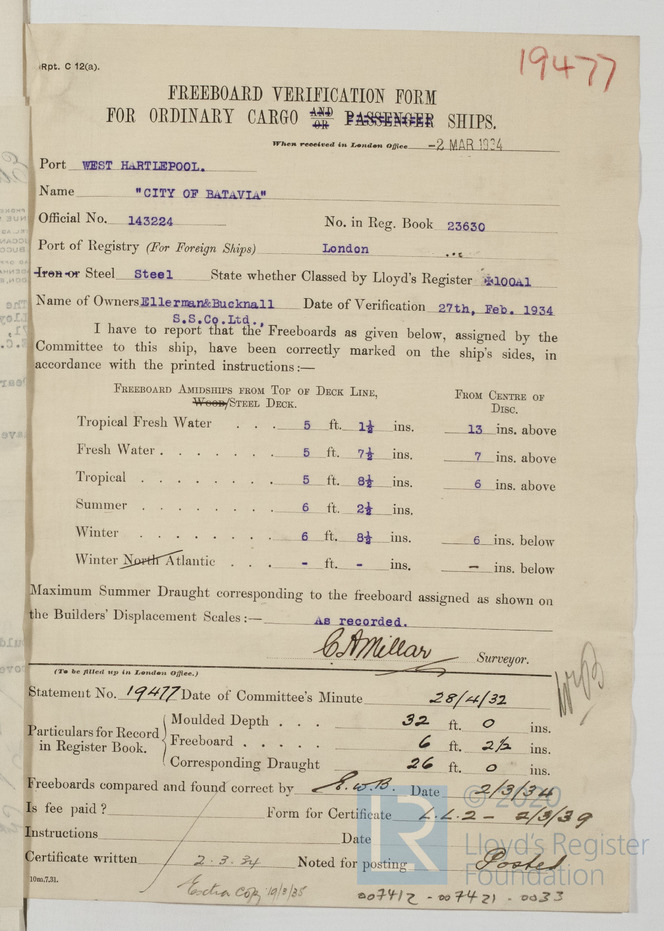 Rpt. C 12(a).
19477
FREEBOARD VERIFICATION FORM
FOR ORDINARY CARGO AND OR PASSENGER SHIPS.
When received in London Office -2 MAR 1934
Port WEST HARTLEPOOL.
Name "CITY OF BATAVIA"
Official No. 143224 No. in Reg. Book 23630
Port of Registry (For Foreign Ships) London
Iron or Steel Steel State whether Classed by Lloyd's Register ✠100A1
Name of Owners Ellerman&Bucknall Date of Verification 27th, Feb. 1934
S.S.Co.Ltd.,
I have to report that the Freeboards as given below, assigned by the
Committee to this ship, have been correctly marked on the ship's sides, in
accordance with the printed instructions:—
FREEBOARD AMIDSHIPS FROM TOP OF DECK LINE, FROM CENTRE OF
WOOD/STEEL DECK. DISC.
Tropical Fresh Water . . . 5 ft. 1½ ins. 13 ins. above
Fresh Water . . . . . . . 5 ft. 7½ ins. 7 ins. above
Tropical . . . . . . . . 5 ft. 8½ ins. 6 ins. above
Summer . . . . . . . . 6 ft. 2½ ins.
Winter . . . . . . . . 6 ft. 8½ ins. 6 ins. below
Winter North Atlantic . . . - ft. - ins. — ins. below
Maximum Summer Draught corresponding to the freeboard assigned as shown on
the Builders' Displacement Scales:— As recorded.
C A Millar Surveyor.
(To be filled up in London Office.)
Statement No. 19477 Date of Committee's Minute 28/4/32
Particulars for Record in Register Book.
Moulded Depth . . . 32 ft. 0 ins.
Freeboard . . . . . 6 ft. 2½ ins.
Corresponding Draught 26 ft. 0 ins.
Freeboards compared and found correct by E.W.B. Date 2/3/34
Is fee paid? Form for Certificate L.L.2 - 2/3/39
Instructions Date
Certificate written 2.3.34 Noted for posting Posted
10m.7.31.
Extra Copy 19/3/35
007412 - 007421 - 0033
LR
© 2020
Lloyd's Register
Foundation